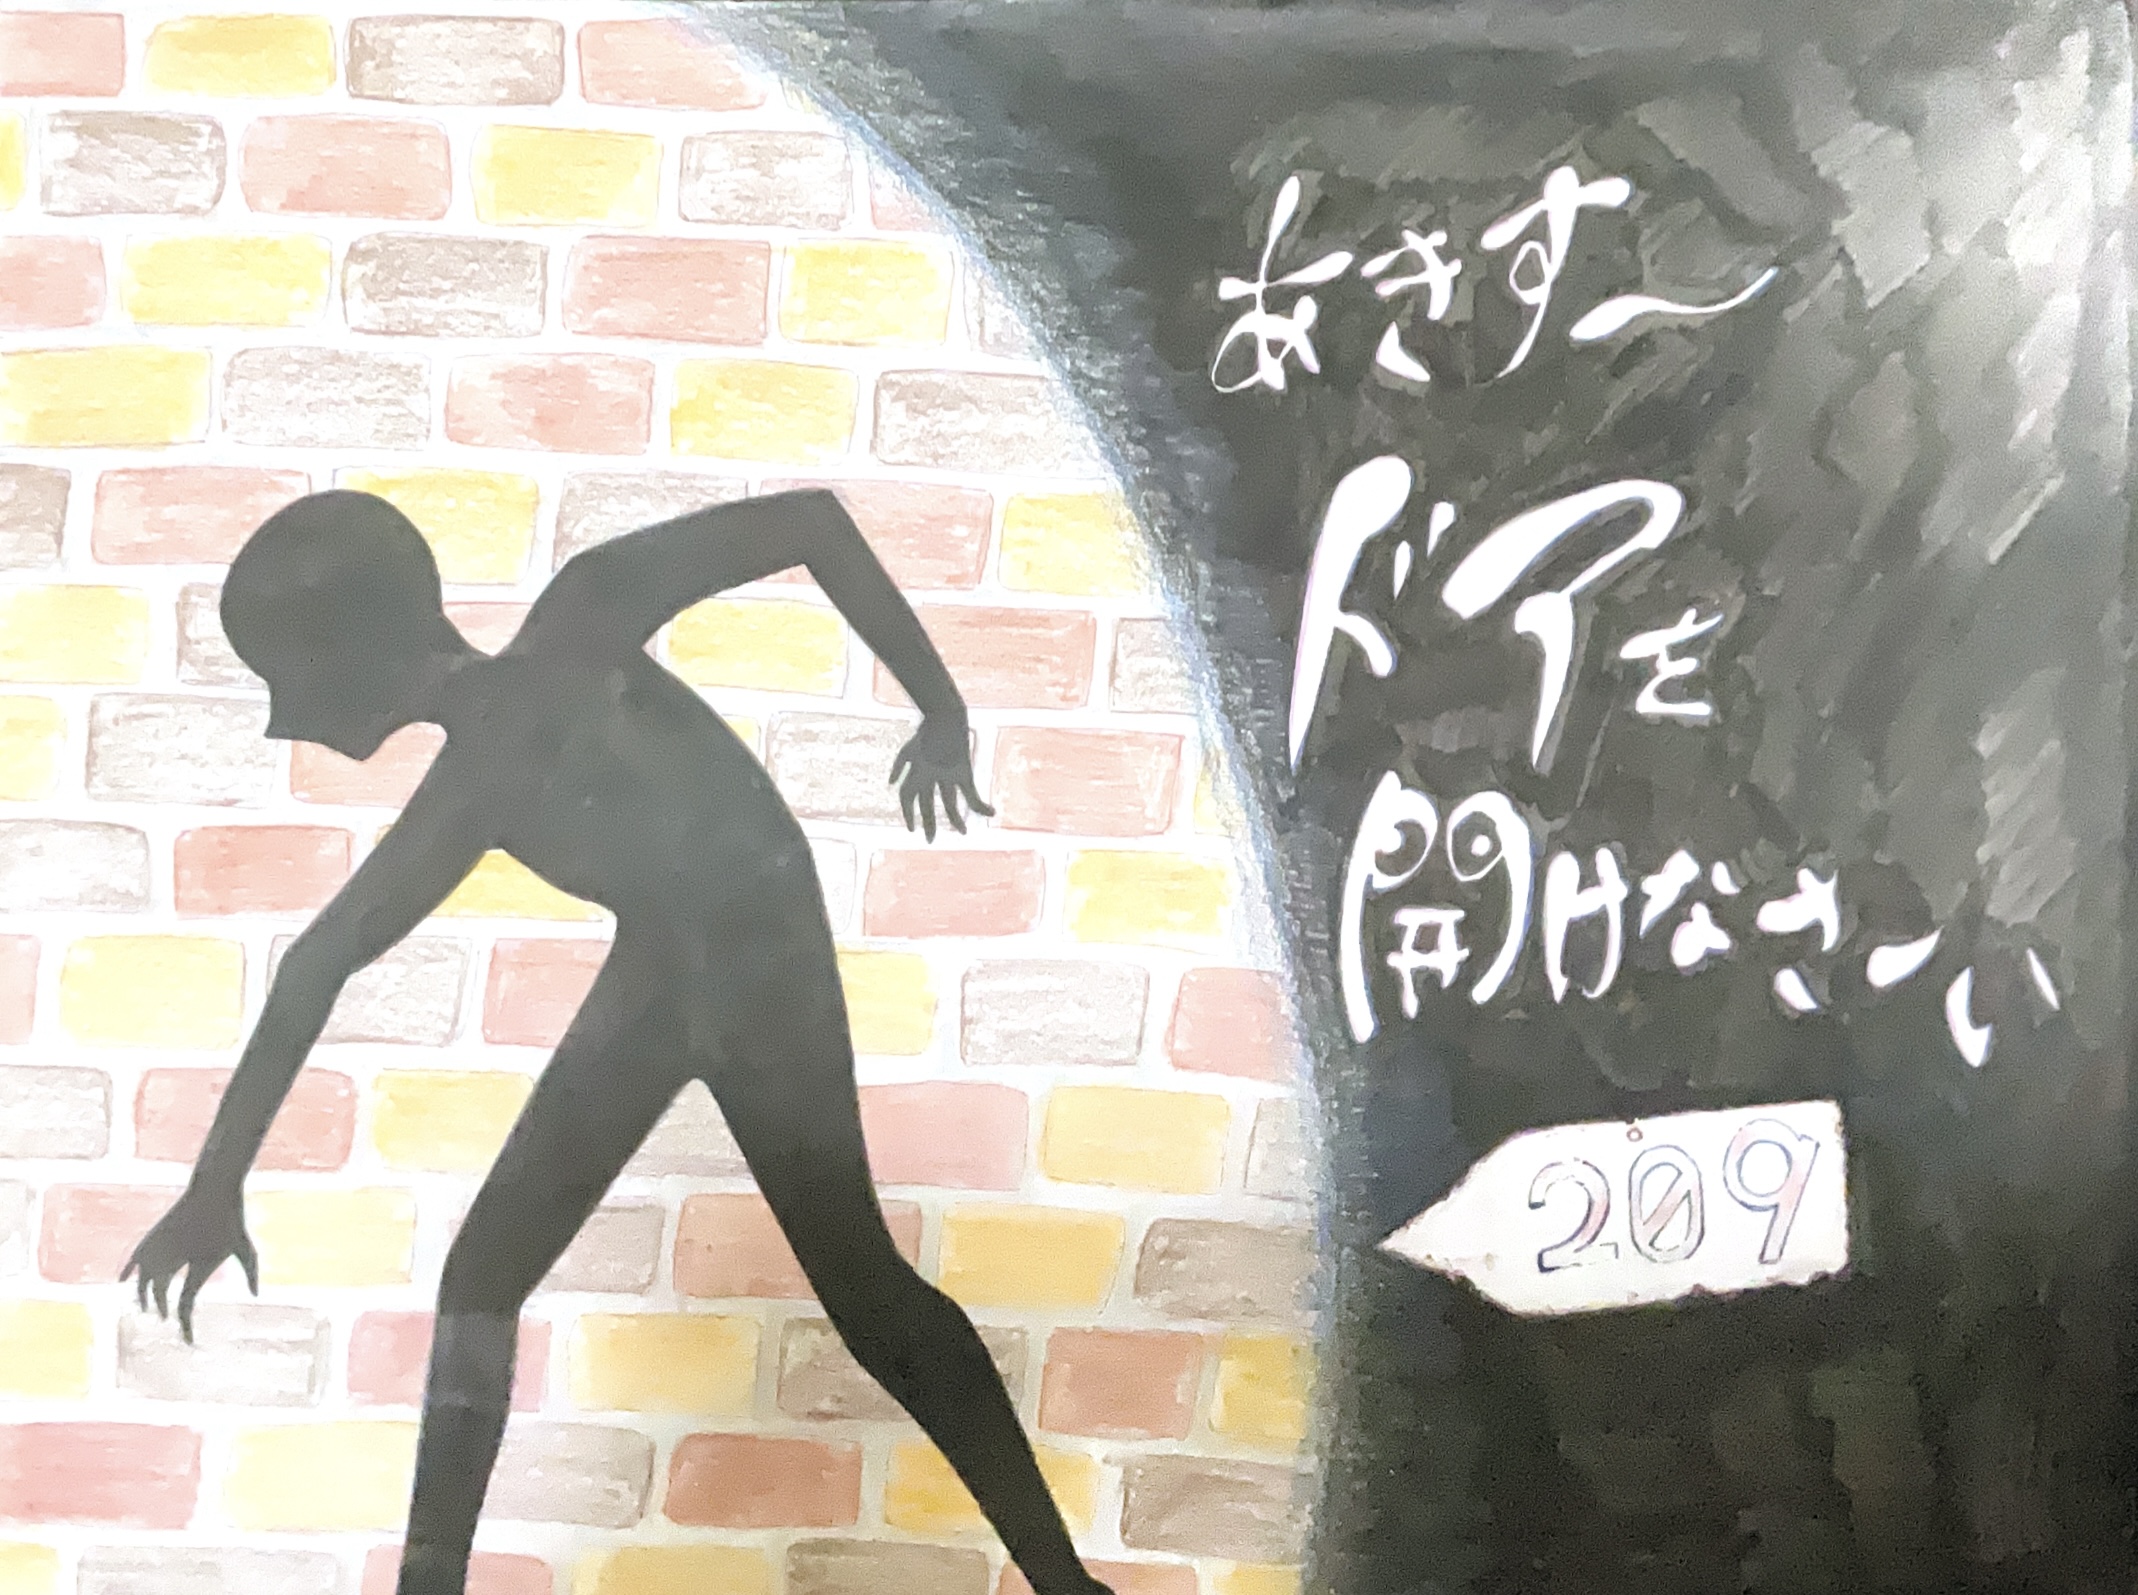 あきす～
ドアを
開けなさーい
209